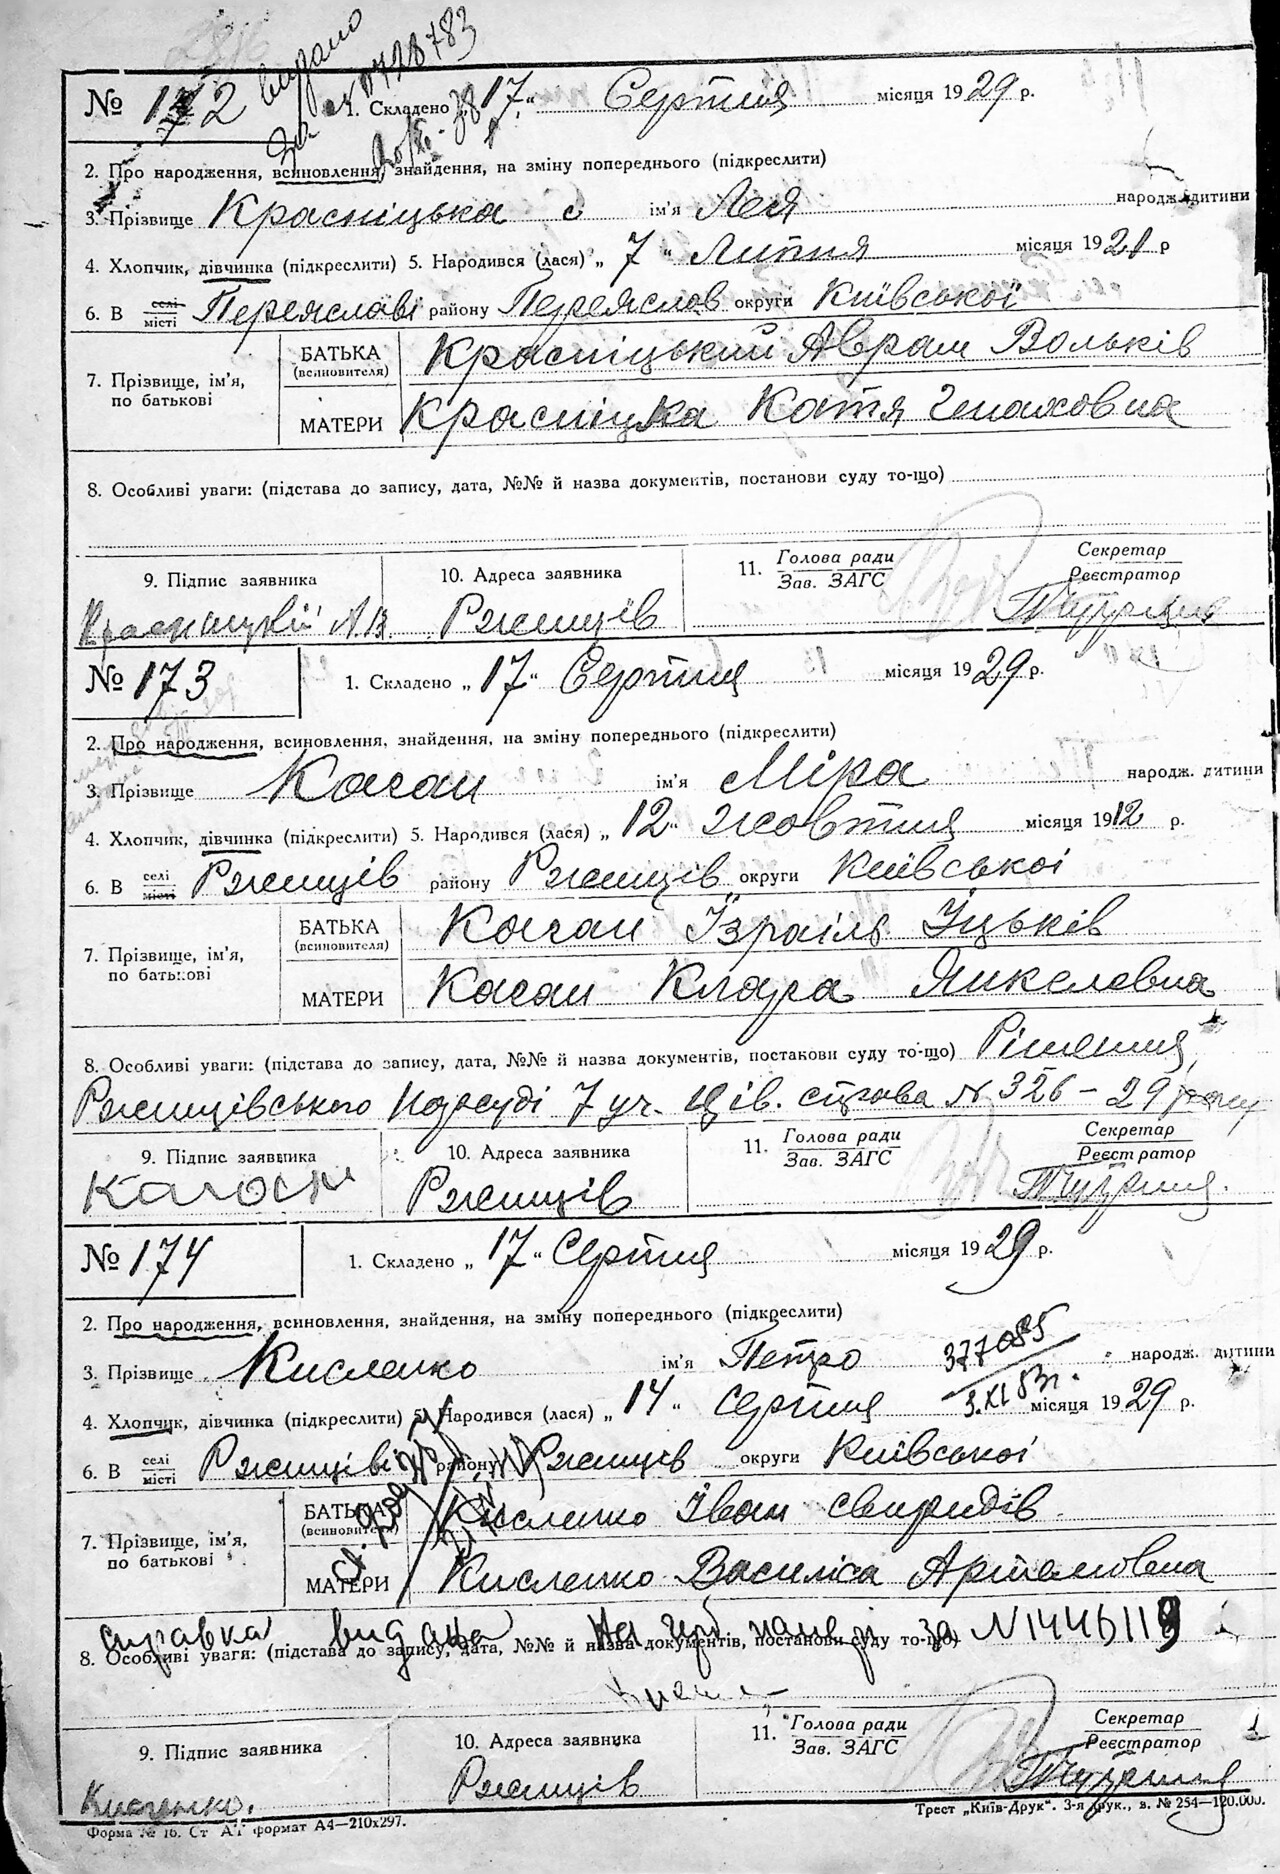 видано
за № 0728783
№ 172
1. Складено „17“ Серпня місяця 1929 р.
2. Про народження, всиновлення, знайдення, на зміну попереднього (підкреслити)
3. Прізвище Красніцька ім'я Лея народж. дитини
4. Хлопчик, дівчинка (підкреслити) 5. Народився (лася) „7“ Липня місяця 1921 р
6. В селі місті Переяславі району Переяслов округи Київської
7. Прізвище, ім'я, по батькові
БАТЬКА (всиновителя) Красніцький Аврам Вольків
МАТЕРИ Красніцька Катя
8. Особливі уваги: (підстава до запису, дата, №№ й назва документів, постанови суду то-що)
9. Підпис заявника 10. Адреса заявника 11. Голова ради Зав. ЗАГС Секретар Реєстратор
Ржищів
№ 173
1. Складено „17“ Серпня місяця 1929 р.
2. Про народження, всиновлення, знайдення, на зміну попереднього (підкреслити)
3. Прізвище Каган ім'я Міра народж. дитини
4. Хлопчик, дівчинка (підкреслити) 5. Народився (лася) „12“ жовтня місяця 1912 р.
6. В селі місті Ржищів району Ржищів округи Київської
7. Прізвище, ім'я, по батькові
БАТЬКА (всиновителя) Каган Ізраіль Іцьків
МАТЕРИ Каган Клара Янкелевна
8. Особливі уваги: (підстава до запису, дата, №№ й назва документів, постанови суду то-що) Рішення
Ржищівського Нарсуді 7 уч. Ців. справа № 326 – 29 року
9. Підпис заявника 10. Адреса заявника 11. Голова ради Зав. ЗАГС Секретар Реєстратор
Каган Ржищів
№ 174
1. Складено „17“ Серпня місяця 1929 р.
2. Про народження, всиновлення, знайдення, на зміну попереднього (підкреслити)
377085
3. Прізвище Кисленко ім'я Петро народж. дитини
3.XI.83г.
4. Хлопчик, дівчинка (підкреслити) 5. Народився (лася) „14“ серпня місяця 1929 р.
6. В селі місті Ржищіві району Ржищів округи Київської
7. Прізвище, ім'я, по батькові
БАТЬКА (всиновителя) Кисленко Іван Свиридів
МАТЕРИ Кисленко Василіса Артемовна
справка видана на за №1446119
8. Особливі уваги: (підстава до запису, дата, №№ й назва документів, постанови суду то-що)
9. Підпис заявника 10. Адреса заявника 11. Голова ради Зав. ЗАГС Секретар Реєстратор
Кисленко. Ржищів
Форма № 16. Ст А4 формат А4—210х297.
Трест „Київ-Друк“. 3-я друк., з. № 254—120.000.